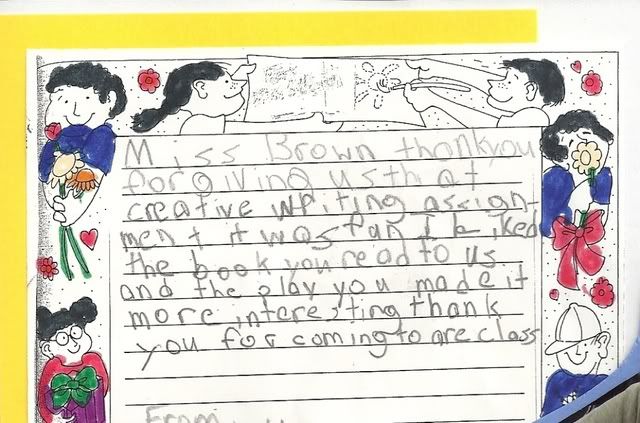 Miss Brown thankyou
for giving us that
creative writing assign-
ment it was fun I Liked
the book you read to us.
and the play you made it
more interesting thank
you for coming to are class
From